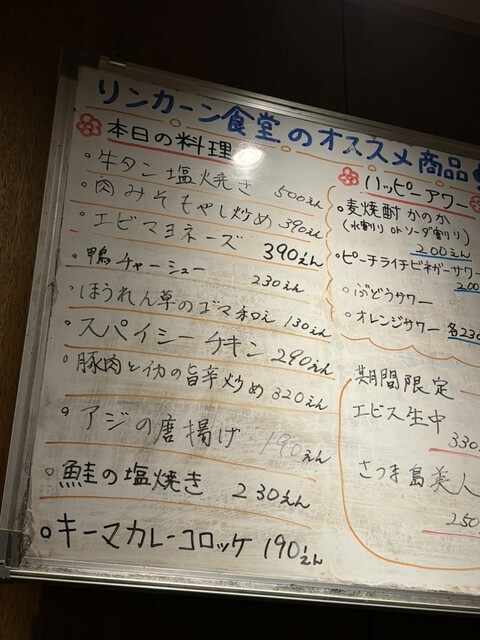 リンカーン食堂のオススメ商品
本日の料理
・牛タン塩焼き 500えん
・肉みそもやし炒め 390えん
・エビマヨネーズ 390えん
・鴨チャーシュー 230えん
・ほうれん草のゴマ和え 130えん
・スパイシーチキン 290えん
・豚肉とイカの旨辛炒め 320えん
・アジの唐揚げ 190えん
・鮭の塩焼き 230えん
・キーマカレーコロッケ 190えん
ハッピーアワー
・麦焼酎 かのか
(水割り or ソーダ割り)
200えん
・ピーチライチビネガーサワー
200
・ぶどうサワー
・オレンジサワー 各230
期間限定
エビス生中
330
さつま島美人
250